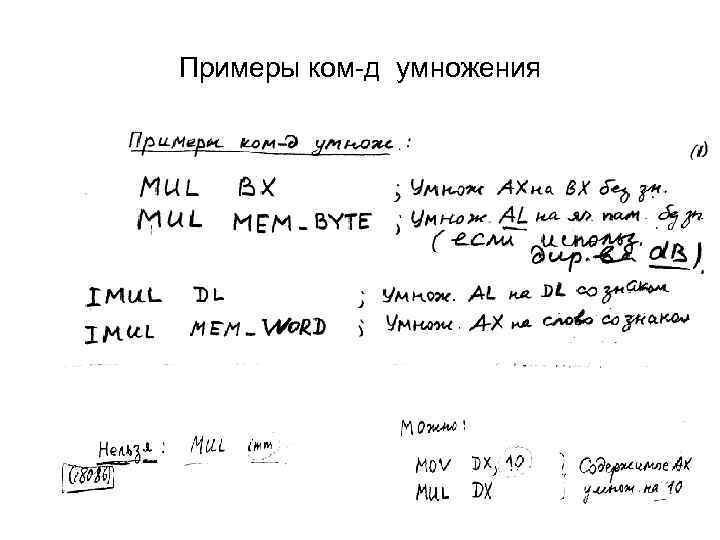 Примеры ком-д умножения
Примеры ком-д умнож.:
(1)
MUL BX ; Умнож AX на BX без зн.
MUL MEM_BYTE ; Умнож. AL на яч. пам. без зн
(если использ.
дир. dB).
IMUL DL ; Умнож. AL на DL со знаком
IMUL MEM_WORD ; Умнож. AX на слово со знаком
Нельзя: MUL imm
(i8086)
Можно:
MOV DX, 10 ; Содержимое AX
MUL DX ; умнож на 10